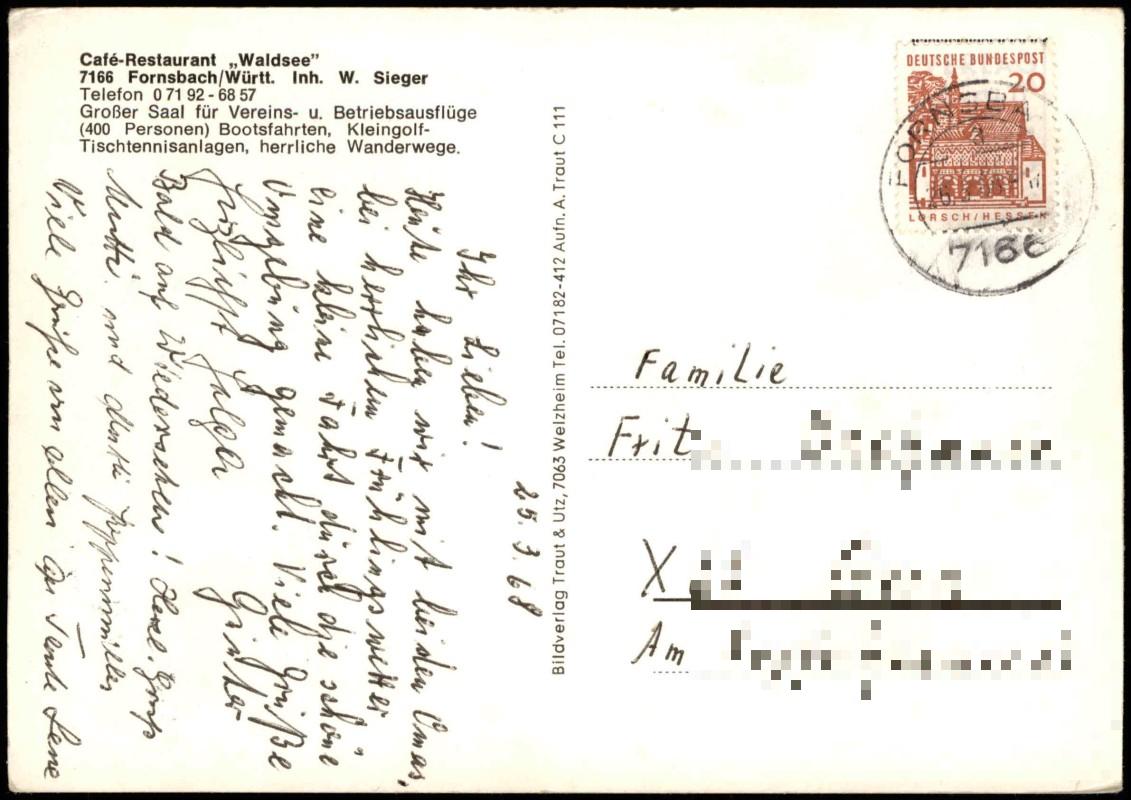 Café-Restaurant „Waldsee”
7166 Fornsbach/Württ. Inh. W. Sieger
Telefon 0 71 92 - 68 57
Großer Saal für Vereins- u. Betriebsausflüge
(400 Personen) Bootsfahrten, Kleingolf-
Tischtennisanlagen, herrliche Wanderwege.
25.3.68
Ihr Lieben!
Heute haben wir mit beiden Omas,
bei herrlichem Frühlingswetter
eine kleine Fahrt durch die schöne
Umgebung gemacht. Viele Grüße
Günter
Bald auf Wiedersehen! Herzl. Grüße
Mutti und
Viele Grüße von allen Tante Lene
Bildverlag Traut & Utz, 7063 Welzheim Tel. 07182-412 Aufn. A. Traut C 111
DEUTSCHE BUNDESPOST
20
LORSCH/HESSEN
FORNSBA
a
7166
Familie
Frit
X
Am